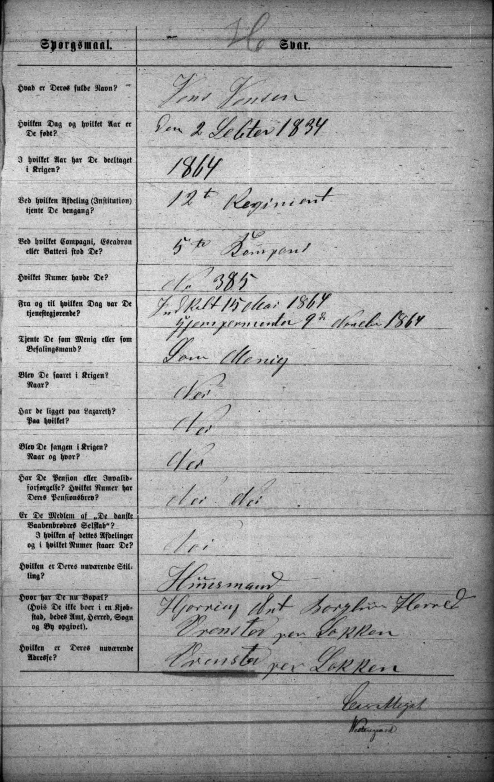 H
Spørgsmaal. Svar.
Hvad er Deres fulde Navn? Jens Jensen
Hvilken Dag og hvilket Aar er
De født? den 2 Sebter 1834
I hvilket Aar har De deeltaget
i Krigen? 1864
Ved hvilken Afdeling (Institution)
tjente De dengang? 12te Regiment
Ved hvilket Compagni, Escadron
eller Batteri stod De? 5te Kompani
Hvilket Numer havde De? No 385
Fra og til hvilken Dag var De
tjenestegjørende? Indkalt 15 Mai 1864
hjempermenter 9de Novebr 1864
Tjente De som Menig eller som
Befalingsmand? Som Menig
Blev De saaret i Krigen?
Naar? Nei
Har de ligget paa Lazareth?
Paa hvilket? Nei
Blev De fangen i Krigen?
Naar og hvor? Nei
Har De Pension eller Invalid-
forsørgelse? Hvilket Numer har
Deres Pensionsbrev? Nei Nei
Er De Medlem af „De danske
Vaabenbrødres Selskab“?
I hvilken af dettes Afdelinger
og i hvilket Numer staaer De? Nei
Hvilken er Deres nuværende Stil-
ling? Huusmand
Hvor har De nu Bopæl?
(Hvis De ikke boer i en Kjøb-
stad, bedes Amt, Herred, Sogn
og By opgivet). Hjørring Amt Borglum Herred
Vrensted per Løkken
Hvilken er Deres nuværende
Adresse? Vrensted per Løkken